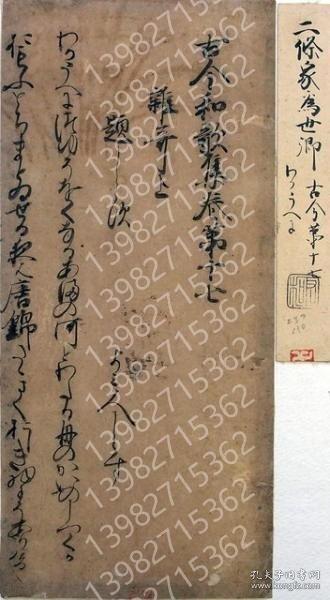 古今和歌集巻第十七
雜哥上
題しらす
よみ人しらす
わかうへに露そをくなるあまの河とわたる舟のかいのしつくか
思ふとちまとゐせる夜は唐錦たゝまくおしき物にそありける
二條家為世卿 古今第十七
わかうへに
13982715362
孔夫子旧书网